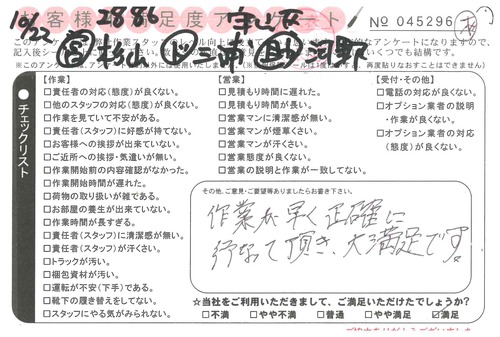 お客様満足度アンケート
10/22
2886
No 045296
杉山 三浦 河野
チェックリスト
【作業】
□責任者の対応(態度)が良くない。
□他のスタッフの対応(態度)が良くない。
□作業を見ていて不安がある。
□責任者(スタッフ)に好感が持てない。
□お客様への挨拶が出来ていない。
□ご近所への挨拶・気遣いが無い。
□作業開始前の内容確認がなかった。
□作業開始時間が遅れた。
□荷物の取り扱いが雑である。
□お部屋の養生が出来ていない。
□作業時間が長すぎる。
□責任者(スタッフ)に清潔感が無い。
□責任者(スタッフ)が汗くさい。
□トラックが汚い。
□梱包資材が汚い。
□運転が不安(下手)である。
□靴下の履き替えをしてない。
□スタッフにやる気がみられない。
【営業】
□見積もり時間に遅れた。
□見積もり時間が長い。
□営業マンに清潔感が無い。
□営業マンが煙草くさい。
□営業マンが汗くさい。
□営業態度が良くない。
□営業の説明と作業が一致してない。
【受付・その他】
□電話の対応が良くない。
□オプション業者の説明
・作業が良くない。
□オプション業者の対応
(態度)が良くない。
その他、ご意見・ご要望等ありましたらお書き下さい。
作業が早く正確に
行なって頂き、大満足です。
☆当社をご利用いただきまして、ご満足いただけたでしょうか?
□不満 □やや不満 □普通 □やや満足 ☑満足